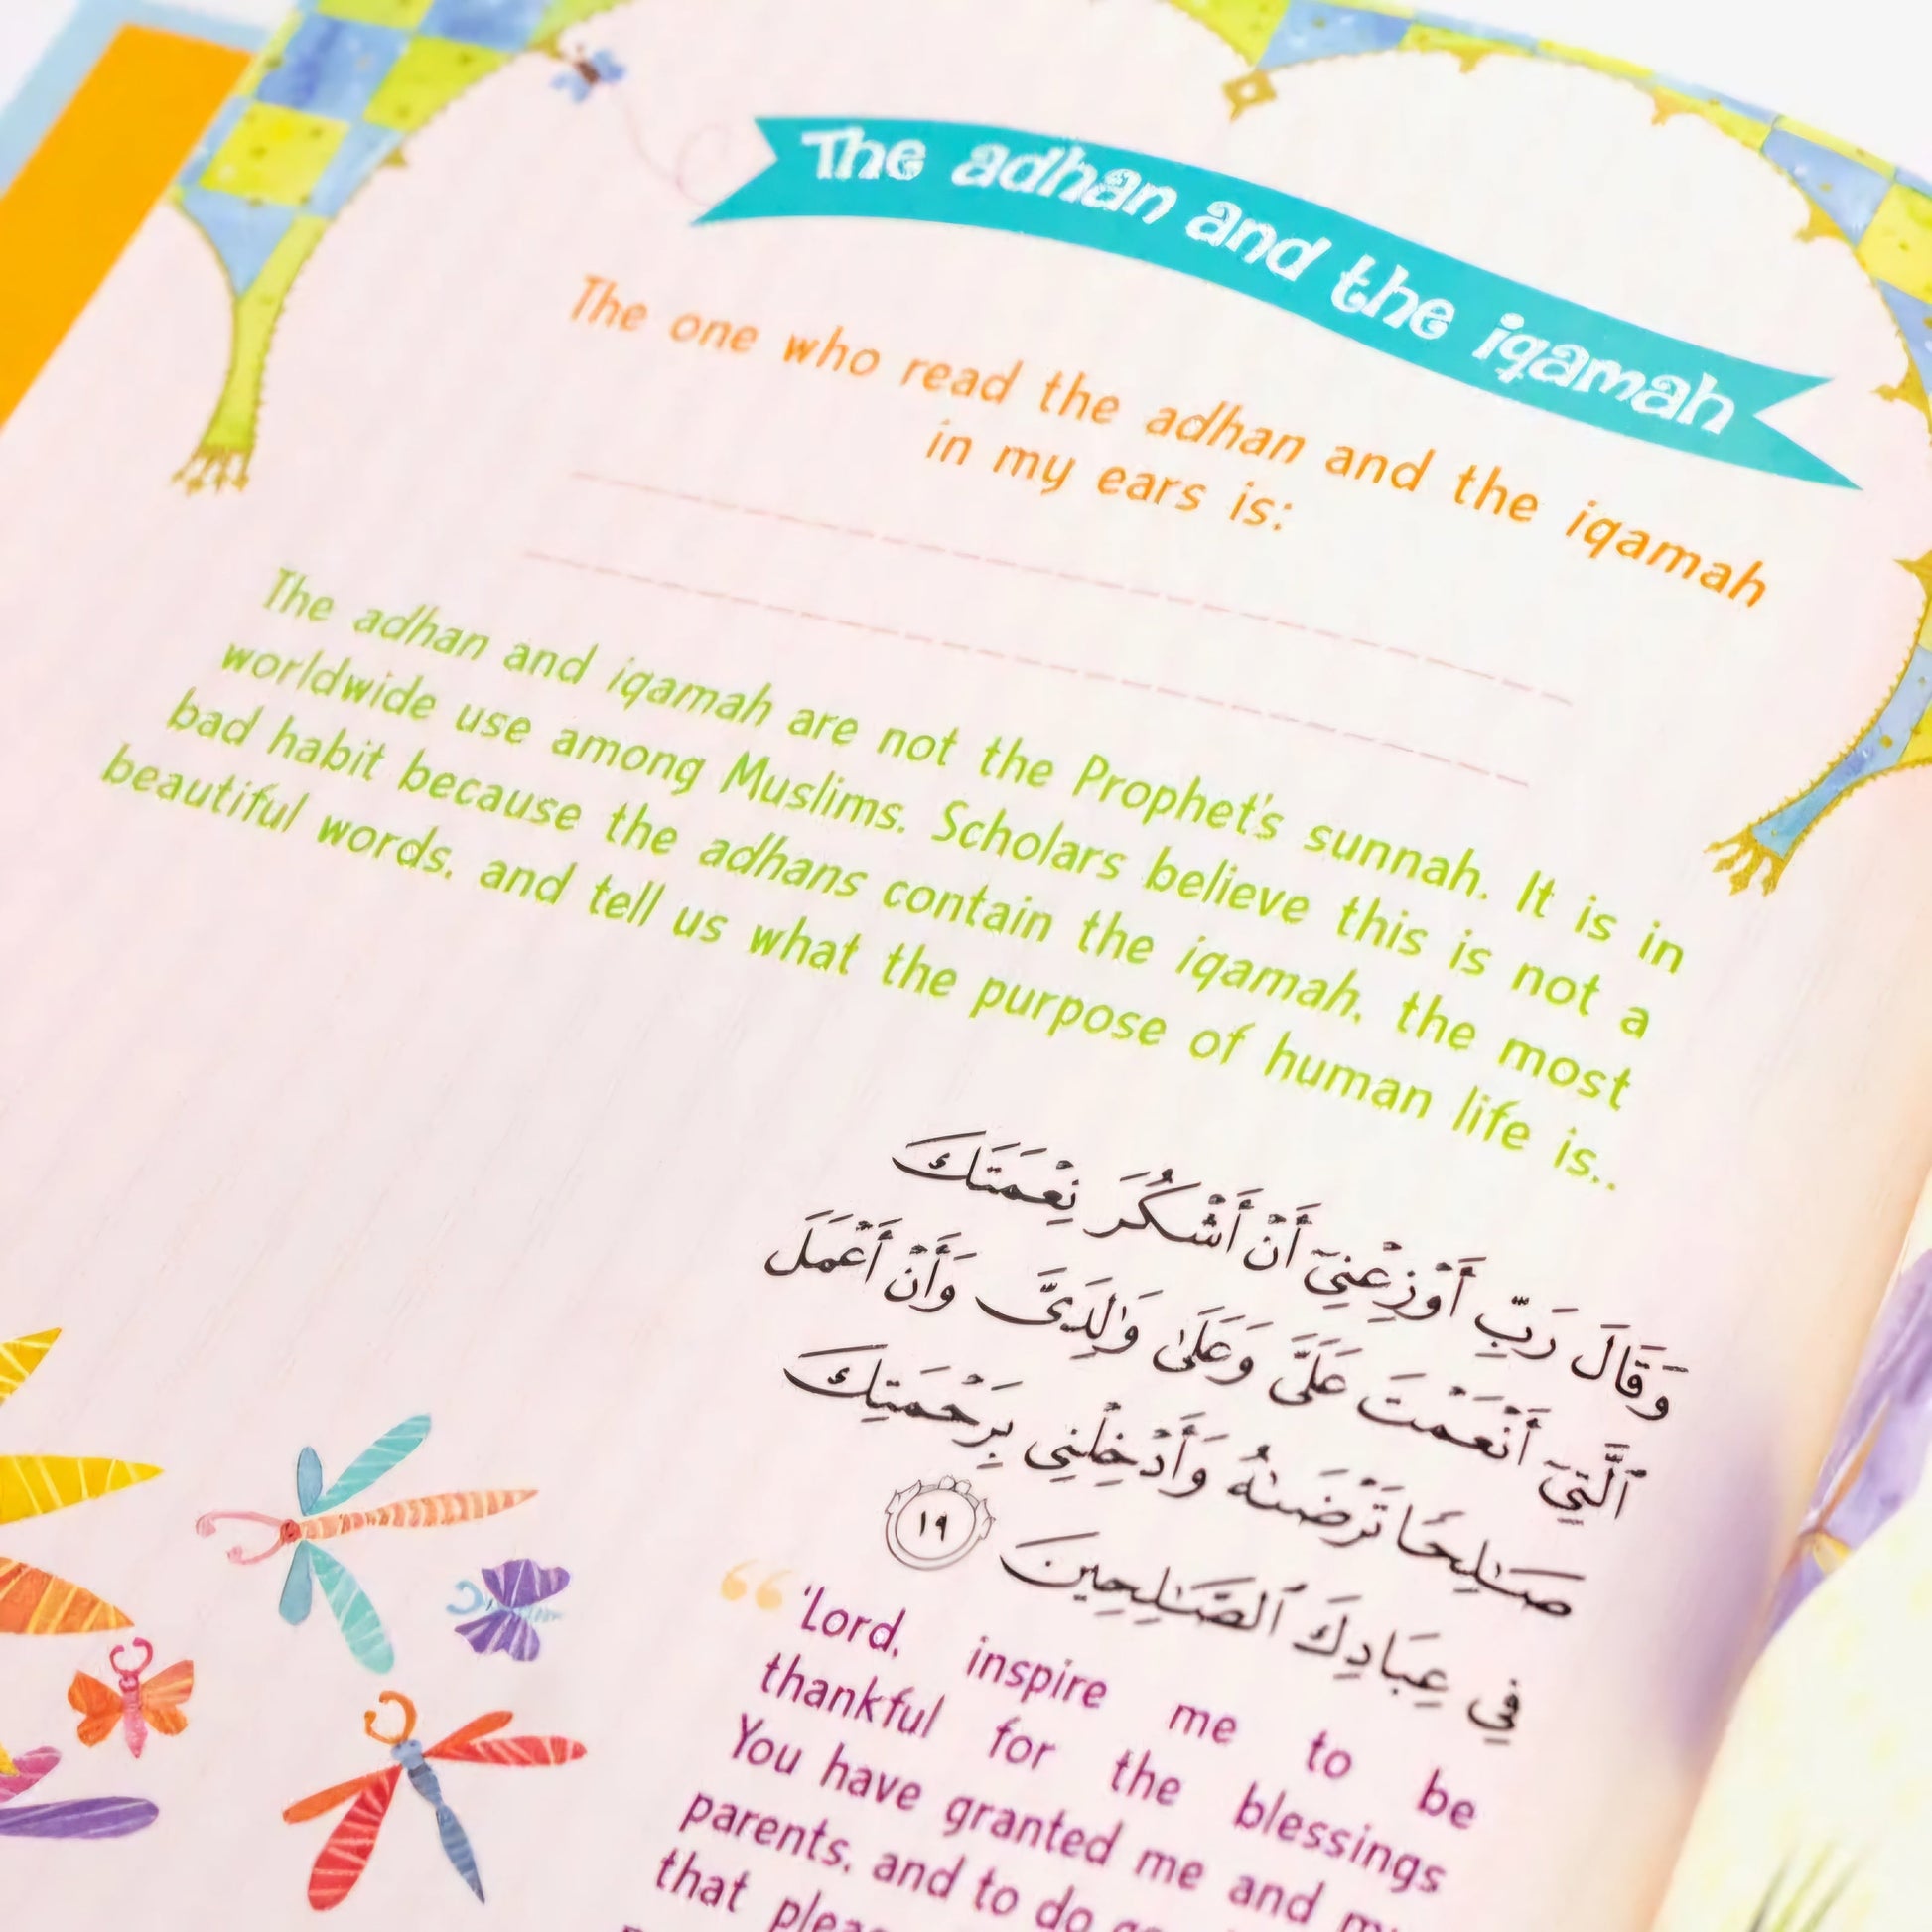 The adhan and the iqamah
The one who read the adhan and the iqamah
in my ears is:
The adhan and iqamah are not the Prophet's sunnah. It is in
worldwide use among Muslims. Scholars believe this is not a
bad habit because the adhans contain the iqamah, the most
beautiful words, and tell us what the purpose of human life is..
وَقَالَ رَبِّ أَوْزِعْنِىٓ أَنْ أَشْكُرَ نِعْمَتَكَ
ٱلَّتِىٓ أَنْعَمْتَ عَلَىَّ وَعَلَىٰ وَٰلِدَىَّ وَأَنْ أَعْمَلَ
صَٰلِحًا تَرْضَىٰهُ وَأَدْخِلْنِى بِرَحْمَتِكَ
فِى عِبَادِكَ ٱلصَّٰلِحِينَ ١٩
“'Lord, inspire me to be
thankful for the blessings
You have granted me and
parents, and to do
that